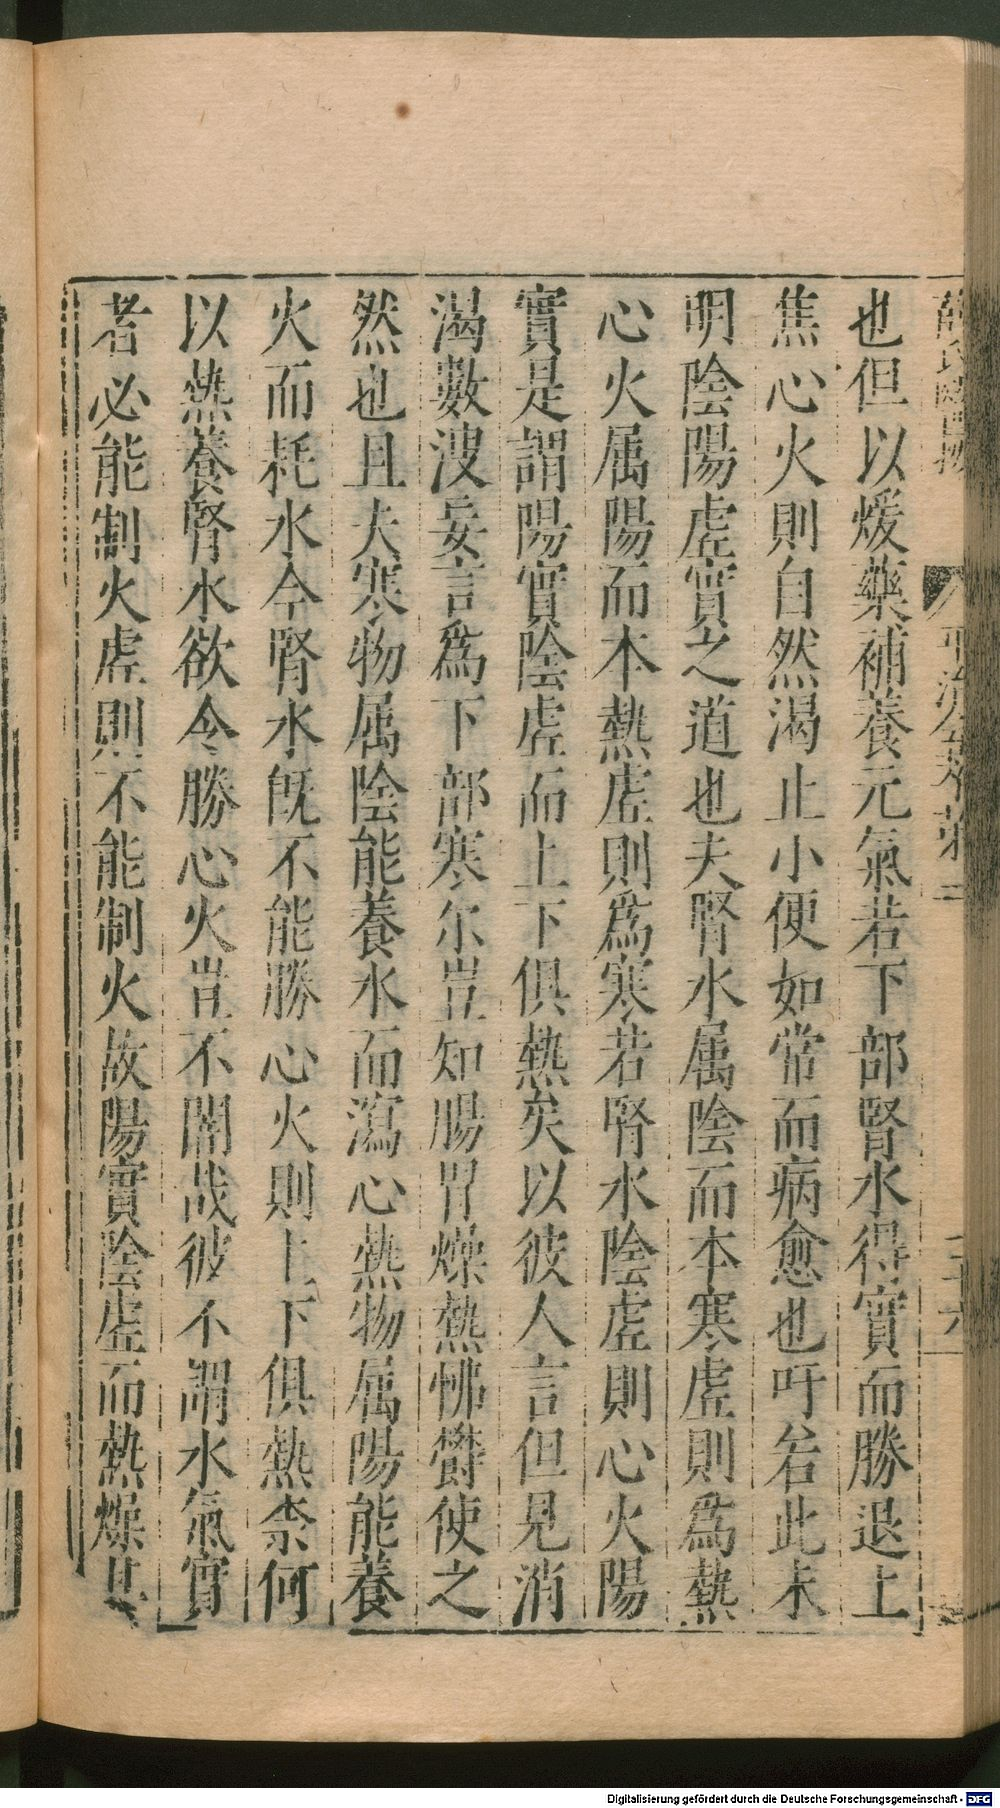 也但以煖藥補養元氣若下部腎水得實而勝退上
焦心火則自然渴止小便如常而病愈也吁若此未
明陰陽虛實之道也夫腎水属陰而本寒虛則爲熱
心火属陽而本熱虛則爲寒若腎水陰虛則心火陽
實是謂陽實陰虛而上下俱熱矣以彼人言但見消
渴數溲妄言爲下部寒尔豈知腸胃燥熱怫欝使之
然也且夫寒物属陰能養水而瀉心熱物属陽能養
火而耗水今腎水旣不能勝心火則上下俱熱柰何
以熱養腎水欲令勝心火豈不闇哉彼不謂水氣實
者必能制火虛則不能制火故陽實陰虛而熱燥其
Digitalisierung gefördert durch die Deutsche Forschungsgemeinschaft - DFG